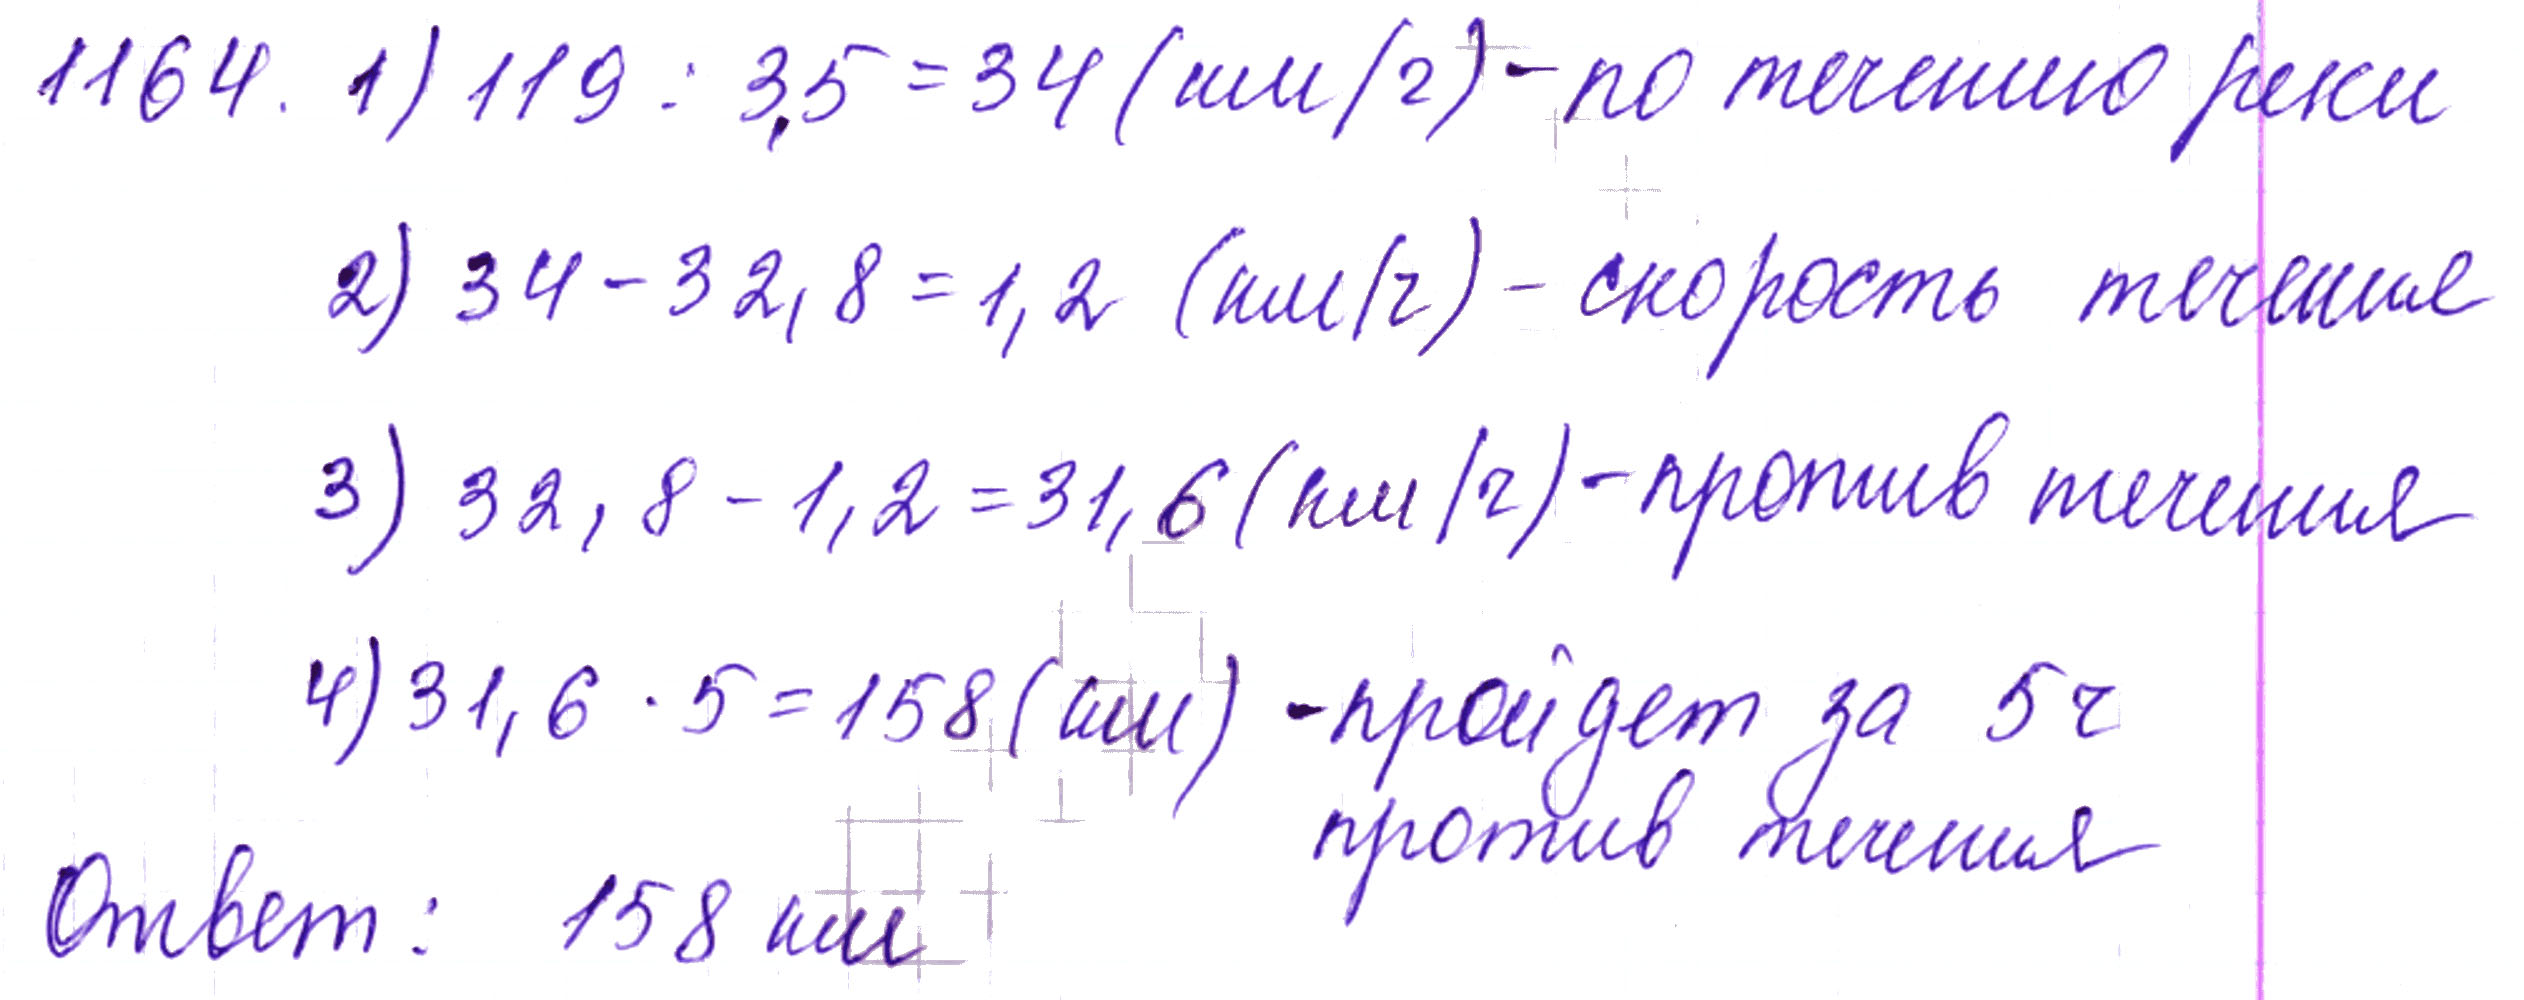 1164. 1) 119 : 3,5 = 34 (км/ч) - по течению реки
2) 34 - 32,8 = 1,2 (км/ч) - скорость течения
3) 32,8 - 1,2 = 31,6 (км/ч) - против течения
4) 31,6 · 5 = 158 (км) - пройдет за 5 ч
против течения
Ответ: 158 км